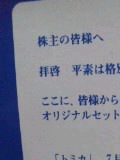 株主の皆様へ
拝啓 平素は格
ここに、皆様から
オリジナルセット
「トミカ」